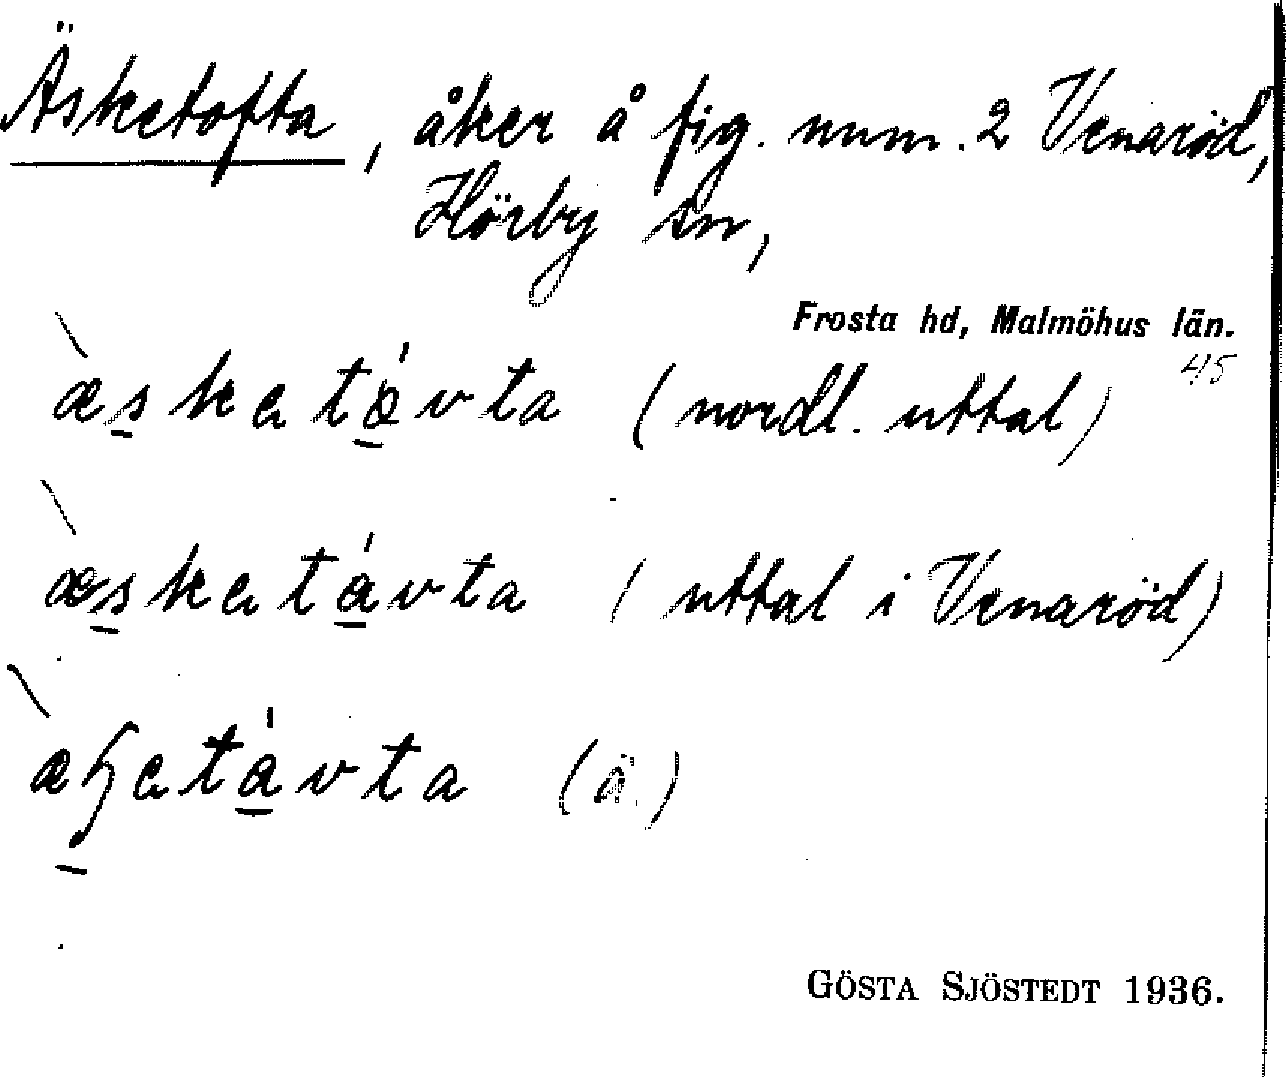 Äsketofta, åker å fig. num. 2 Venaröd,
Hörby sn,
Frosta hd, Malmöhus län.
45
æ̀sketǻvta (nordl. uttal)
æ̀sketávta (uttal i Venaröd)
(ä.)
GÖSTA SJÖSTEDT 1936.